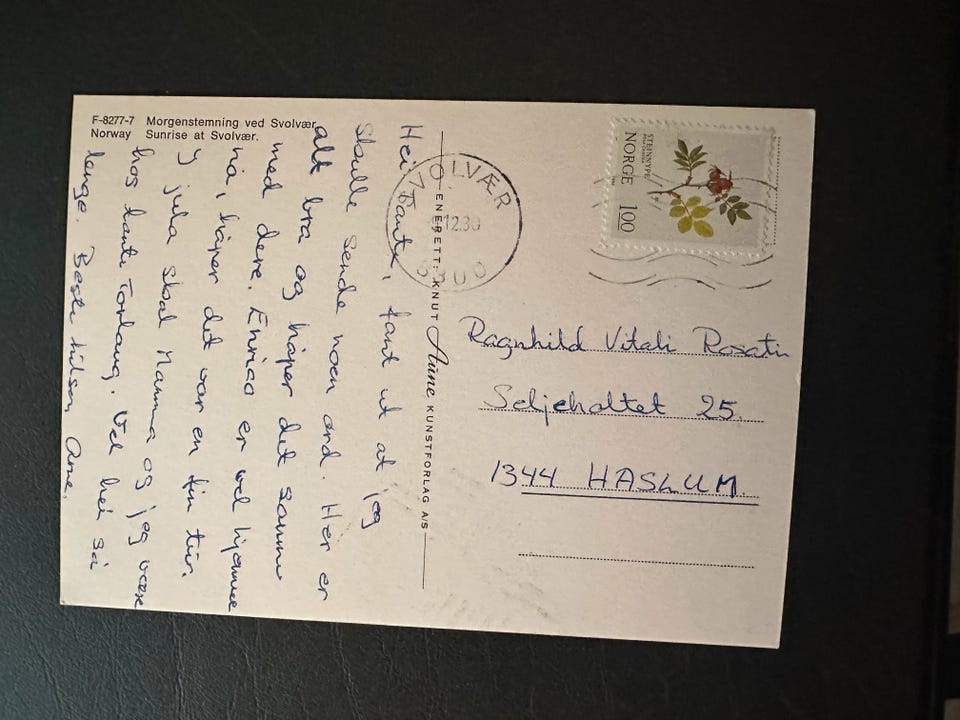 F-8277-7 Morgenstemning ved Svolvær
Norway Sunrise at Svolvær.
Hei Tante, fant ut at jeg
skulle sende noen ord. Her er
alt bra og håper det samme
med dere. Enrico er vel hjemme
nå, håper det var en fin tur.
I jula skal Mamma og jeg være
hos tante Torlaug. Vel hei så
lenge. Beste hilsen Arne.
ENERETT: KNUT Aune KUNSTFORLAG A/S
SVOLVÆR
12.80
STEINNYPE
NORGE 100
Ragnhild Vitali Rosati
Seljeholtet 25.
1344 HASLUM.